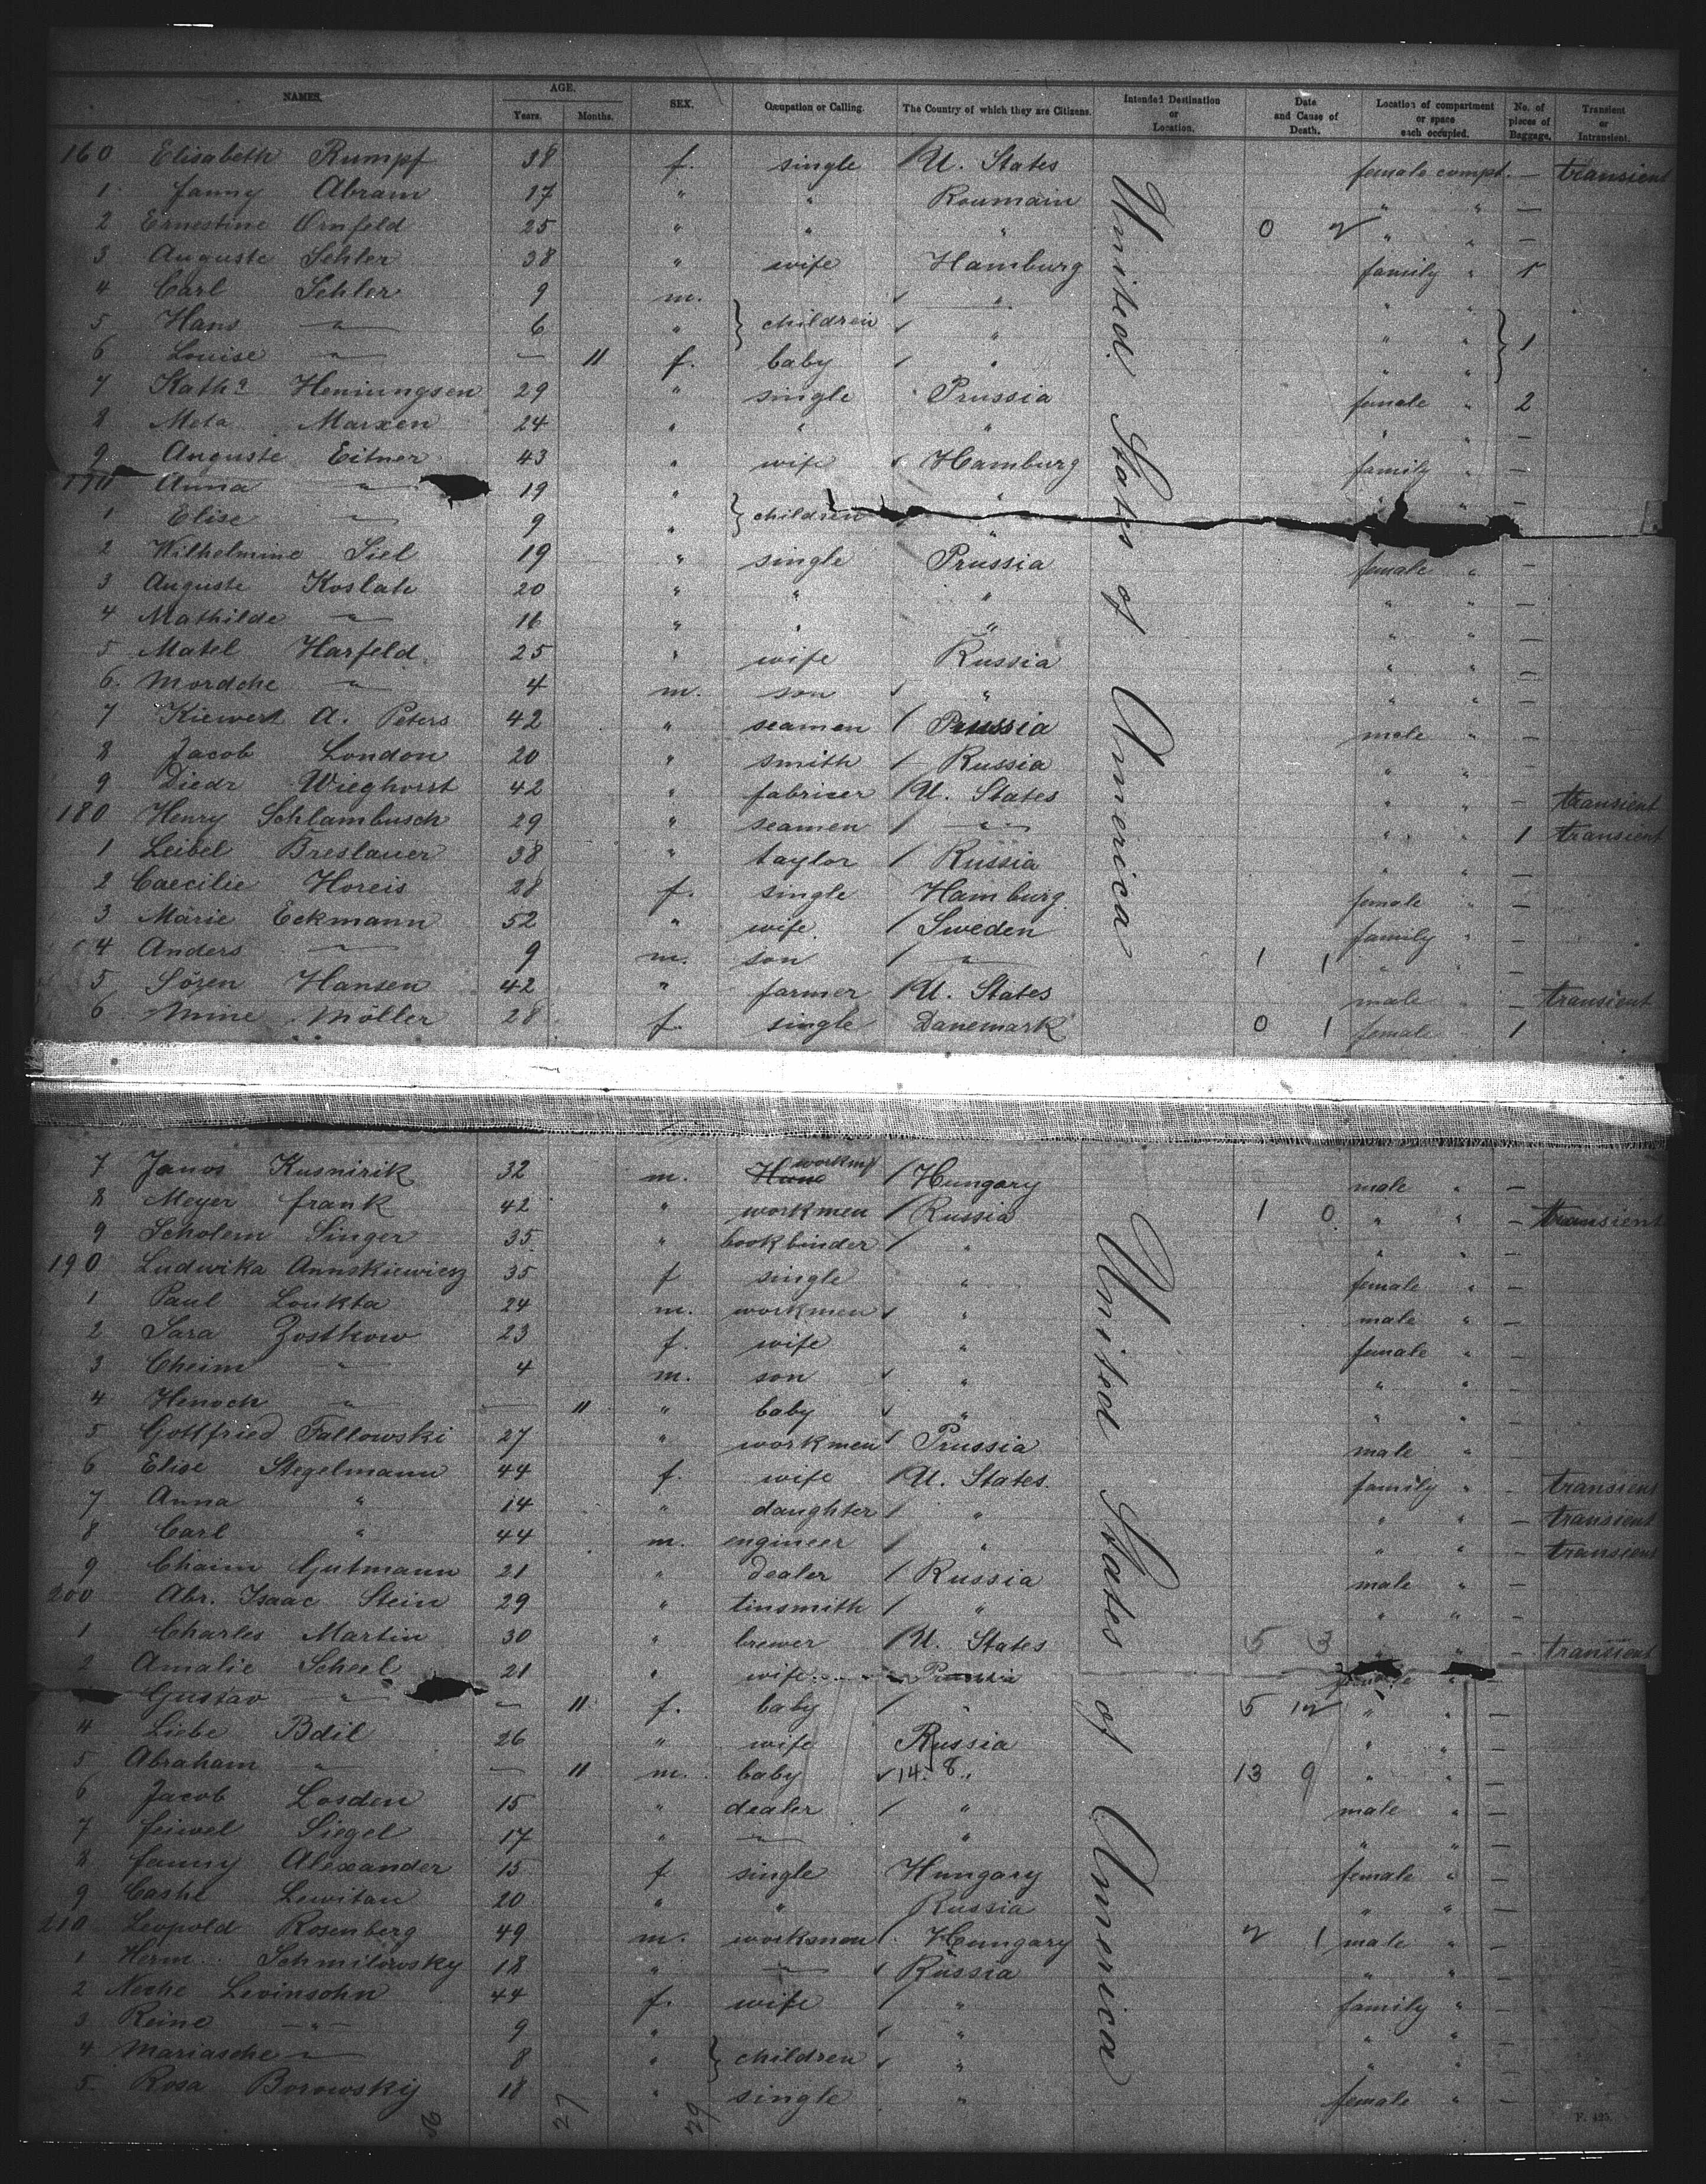 NAMES. AGE. Years. Months. SEX. Occupation or Calling. The Country of which they are Citizens. Intended Destination or Location. Date and Cause of Death. Location of compartment or space each occupied. No. of pieces of Baggage. Transient or Intransient.
United States of America
160 Elisabeth Rumpf 38 f. single / U. States female compt. — transient
1 Fanny Abram 17 " " Roumain " " —
2 Ernestine Ornfeld 25 " " " 0 2 " " —
3 Auguste Sehler 38 " wife Hamburg family " 1
4 Carl Sehler 9 m. } children ✓ " " "
5 Hans " 6 " ✓ " " " } 1
6 Louise " — 11 f. baby / " " "
7 Katha Henningsen 29 " single Prussia female " 2
8 Meta Marxen 24 " " " " " —
9 Auguste Eitner 43 " wife ✓ Hamburg family " —
170 Anna " 19 " } children " " " —
1 Elise " 9 " "
2 Wilhelmine Siel 19 " single Prussia female " —
3 Auguste Koslate 20 " " " " " —
4 Mathilde " 16 " " " " " —
5 Matel Harfeld 25 " wife Russia " " —
6 Mordche " 4 m. son ✓ " " " —
7 Kiewert A. Peters 42 " seamen / Prussia male " —
8 Jacob London 20 " smith / Russia " " —
9 Diedr Wieghorst 42 " fabricer / U. States " " — transient
180 Henry Schlambusch 29 " seamen / " " " 1 transient
1 Leibel Breslauer 38 " taylor / Russia " " —
2 Caecilie Horeis 28 f. single Hamburg female " —
3 Märie Eckmann 52 " wife / Sweden family " —
4 Anders " 9 m. son / " 1 1 " " —
5 Sören Hansen 42 " farmer / U. States male " — transient
6 Mine Möller 28 f. single Danemark 0 1 female 1
United States of America
7 Janos Kusnirik 32 m. workm / Hungary male " —
8 Meyer Frank 42 " workmen / Russia 1 0 " " — transient
9 Scholem Singer 35 " bookbinder / " " " —
190 Ludwika Annskiewicz 35 f single " female " —
1 Paul Loukta 24 m. workmen ✓ " male " —
2 Sara Zostkow 23 f. wife " female " —
3 Cheim " 4 m. son ✓ " " " —
4 Henoch " — 11 " baby ✓ " " " —
5 Gottfried Fallowski 27 " workmen / Prussia male " —
6 Elise Stegelmann 44 f. wife / U. States family " — transient
7 Anna " 14 " daughter / " " " — transient
8 Carl " 44 m. engineer / " " " — transient
9 Chaim Gutmann 21 " dealer / Russia male " —
200 Abr. Isaac Stein 29 " tinsmith / " " " —
1 Charles Martin 30 " brewer / U. States 5 3 " " — transient
2 Amalie Scheel 21 " wife Prussia female " —
Gustav " — 11 f. baby / " 5 12 " " —
4 Liebe Bdil 26 " wife Russia " " —
5 Abraham " — 11 m. baby ✓ 14. 8 " 13 9 " " —
6 Jacob Losden 15 " dealer / " male " —
7 Feiwel Siegel 17 " " " " " —
8 Fanny Alexander 15 f single Hungary female " —
9 Cashe Lewitan 20 " " Russia " " —
210 Leopold Rosenberg 49 m. workmen / Hungary 2 1 male " —
1 Herm. Schmilowsky 18 " " ✓ Russia " " —
2 Neche Levinsohn 44 f. wife / " family " —
3 Reine " 9 " } children ✓ " " " —
4 Mariasche " 8 " ✓ " " " —
5 Rosa Borowskij 18 " single " female " —
27 62
F. 425.